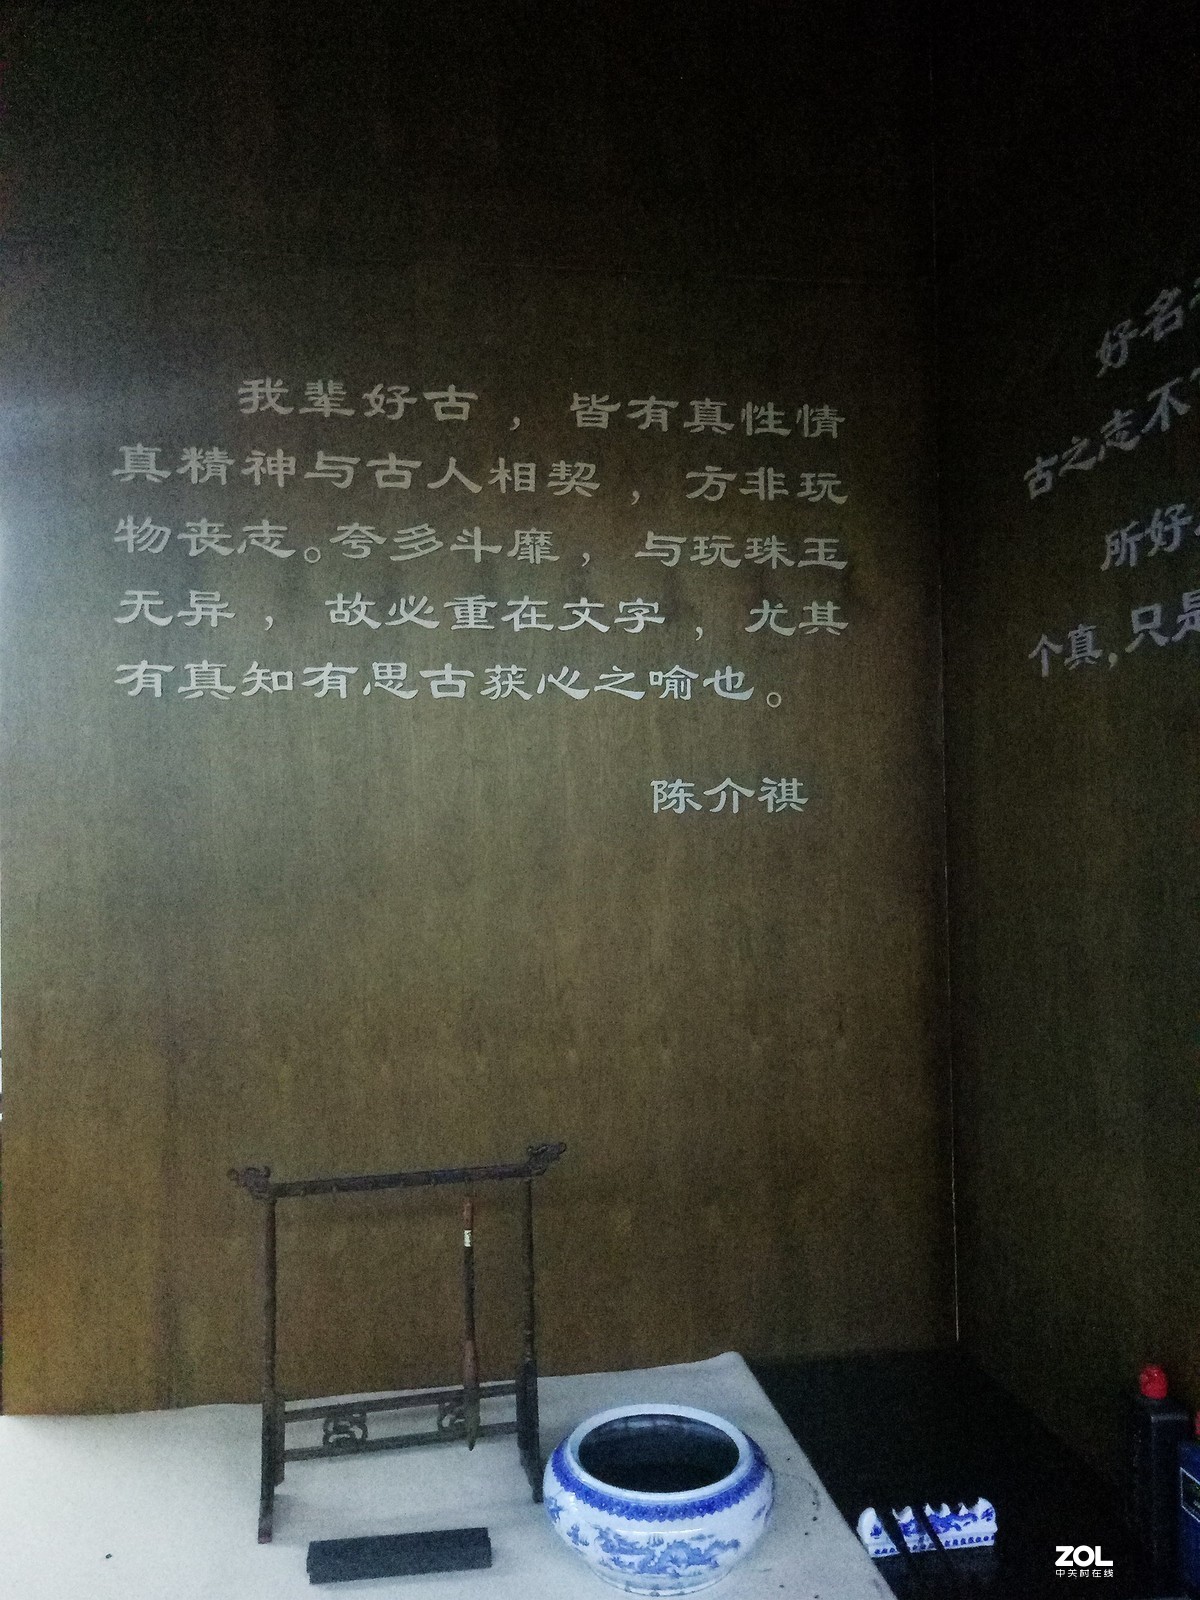 我辈好古，皆有真性情
真精神与古人相契，方非玩
物丧志。夸多斗靡，与玩珠玉
无异，故必重在文字，尤其
有真知有思古获心之喻也。
陈介祺
好名
古之志不
所好
个真，只是
ZOL
中关村在线